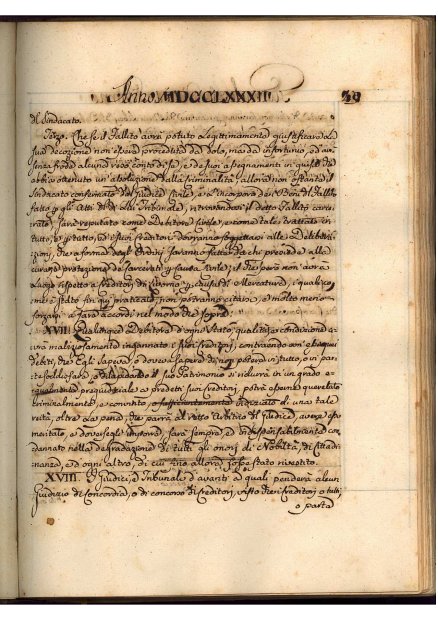 Anno MDCCLXXXIII 39
del Sindacato.
Terzo. Che se il Fallito avrà potuto legittimamente giustificare la
sua decozione non essere proceduta da dolo, ma da infortunio, ed as-
senza frode alcuna
ottenuto un'assoluzione dalla criminalità, allora non ostante il
Sindacato confermato dal Giudice Civile, e l'incorpora de' Beni del Fallito
fatto p gli Atti di detto Tribunale, ritrovandosi il detto Fallito carce-
rato, sarà reputato come Debitore Civile, e come tale trattato in
tutto, e p tutto, ed i suoi Creditori dovranno soggettarsi alle Delibera-
zioni, che a forma degli Ordini saranno fatte da chi presiede alla
curia, e protezione de' carcerati p causa Civile; il che però non avrà
luogo rispetto a' Creditori, di Cambio, e di Mercatura, i quali co-
me è stato fin qui praticato, non potranno citarsi, e molto meno
sforzarsi a fare accordi nel modo che sopra.
XVII. Qualunque Debitore d'ogni stato, qualità, e condizione a-
vrà maliziosamente ingannato i suoi Creditori, contraendo con essi quei
debiti, che Egli sapeva, o doveva sapere di non potere in tutto, o in par-
te soddisfare, o dilapidando il suo Patrimonio si ridurrà in un grado e-
gualmente pregiudiciale a' predetti suoi Creditori, potrà essere querelato
criminalmente, e convinto, o sufficientemente indiziato di una tale
reità, oltre la pena, che parrà al retto Arbitrio del Giudice, avere esso
meritato, e doversegli imporre, sarà sempre, ed indispensabilmente con-
dannato nella degradazione di tutti gli onori di Nobiltà, di Cittadi-
nanza, ed ogni altro, di cui fino allora fosse stato rivestito.
XVIII. I Giudici, e Tribunali d'avanti a' quali penderà alcun
Giudizio di Concordia, o di concorso di Creditori, visto che i Creditori, o tutti,
o parte